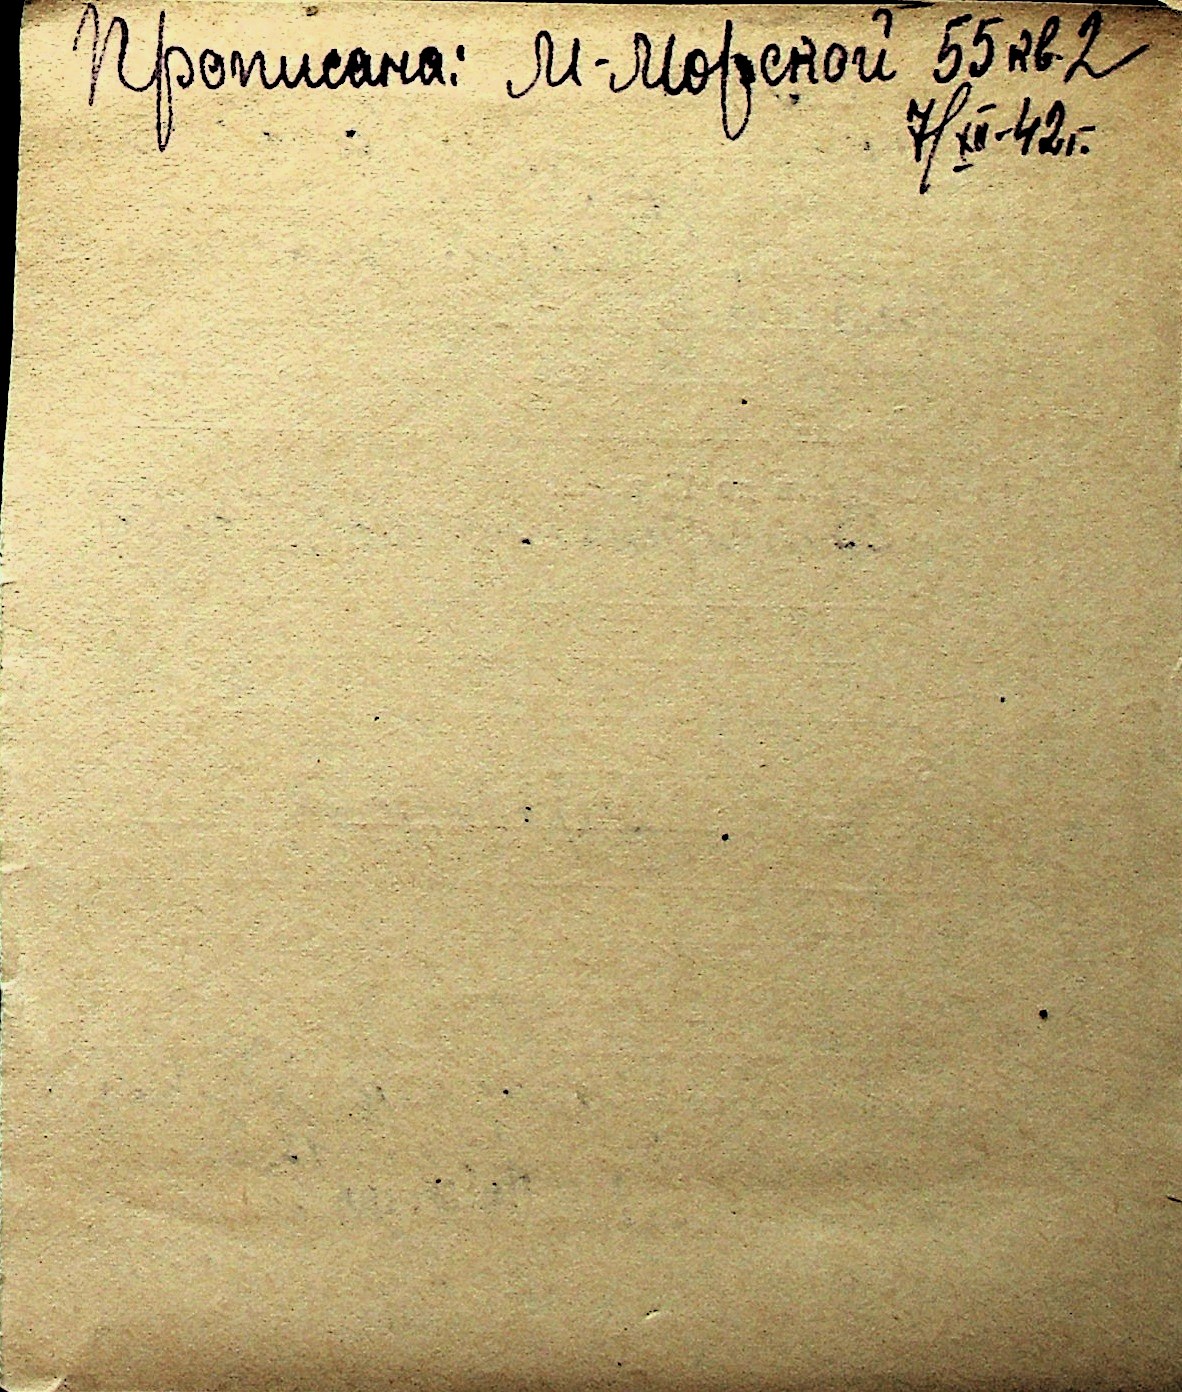 Прописана: М-Морской 55 кв. 2
7/XII-42г.